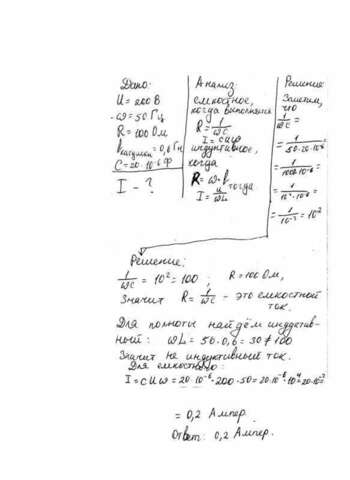 Дано:
U = 200 В
ω = 50 Гц
R = 100 Ом
Lкатушки = 0,6 Гн
C = 20·10⁻⁶ Ф
I - ?
Анализ:
емкостное,
когда выполняется
R = 1/ωC
I = CUω
индуктивное,
когда
R = ω·L
тогда
I = U/ωL
Решение
Заметим,
что
1/ωC =
= 1/50·20·10⁻⁶ =
= 1/1000·10⁻⁶ =
= 1/10³·10⁻⁶ =
= 1/10⁻³ = 10²
Решение:
1/ωC = 10² = 100 ; R = 100 Ом,
Значит R = 1/ωC - это емкостный
ток.
Для полноты найдём индуктив-
ный: ωL = 50·0,6 = 30 ≠ 100
Значит не индуктивный ток.
Для емкостного:
I = CUω = 20·10⁻⁶·200·50 = 20·10⁻⁶·10⁴ = 20·10⁻²
= 0,2 Ампер.
Ответ: 0,2 Ампер.